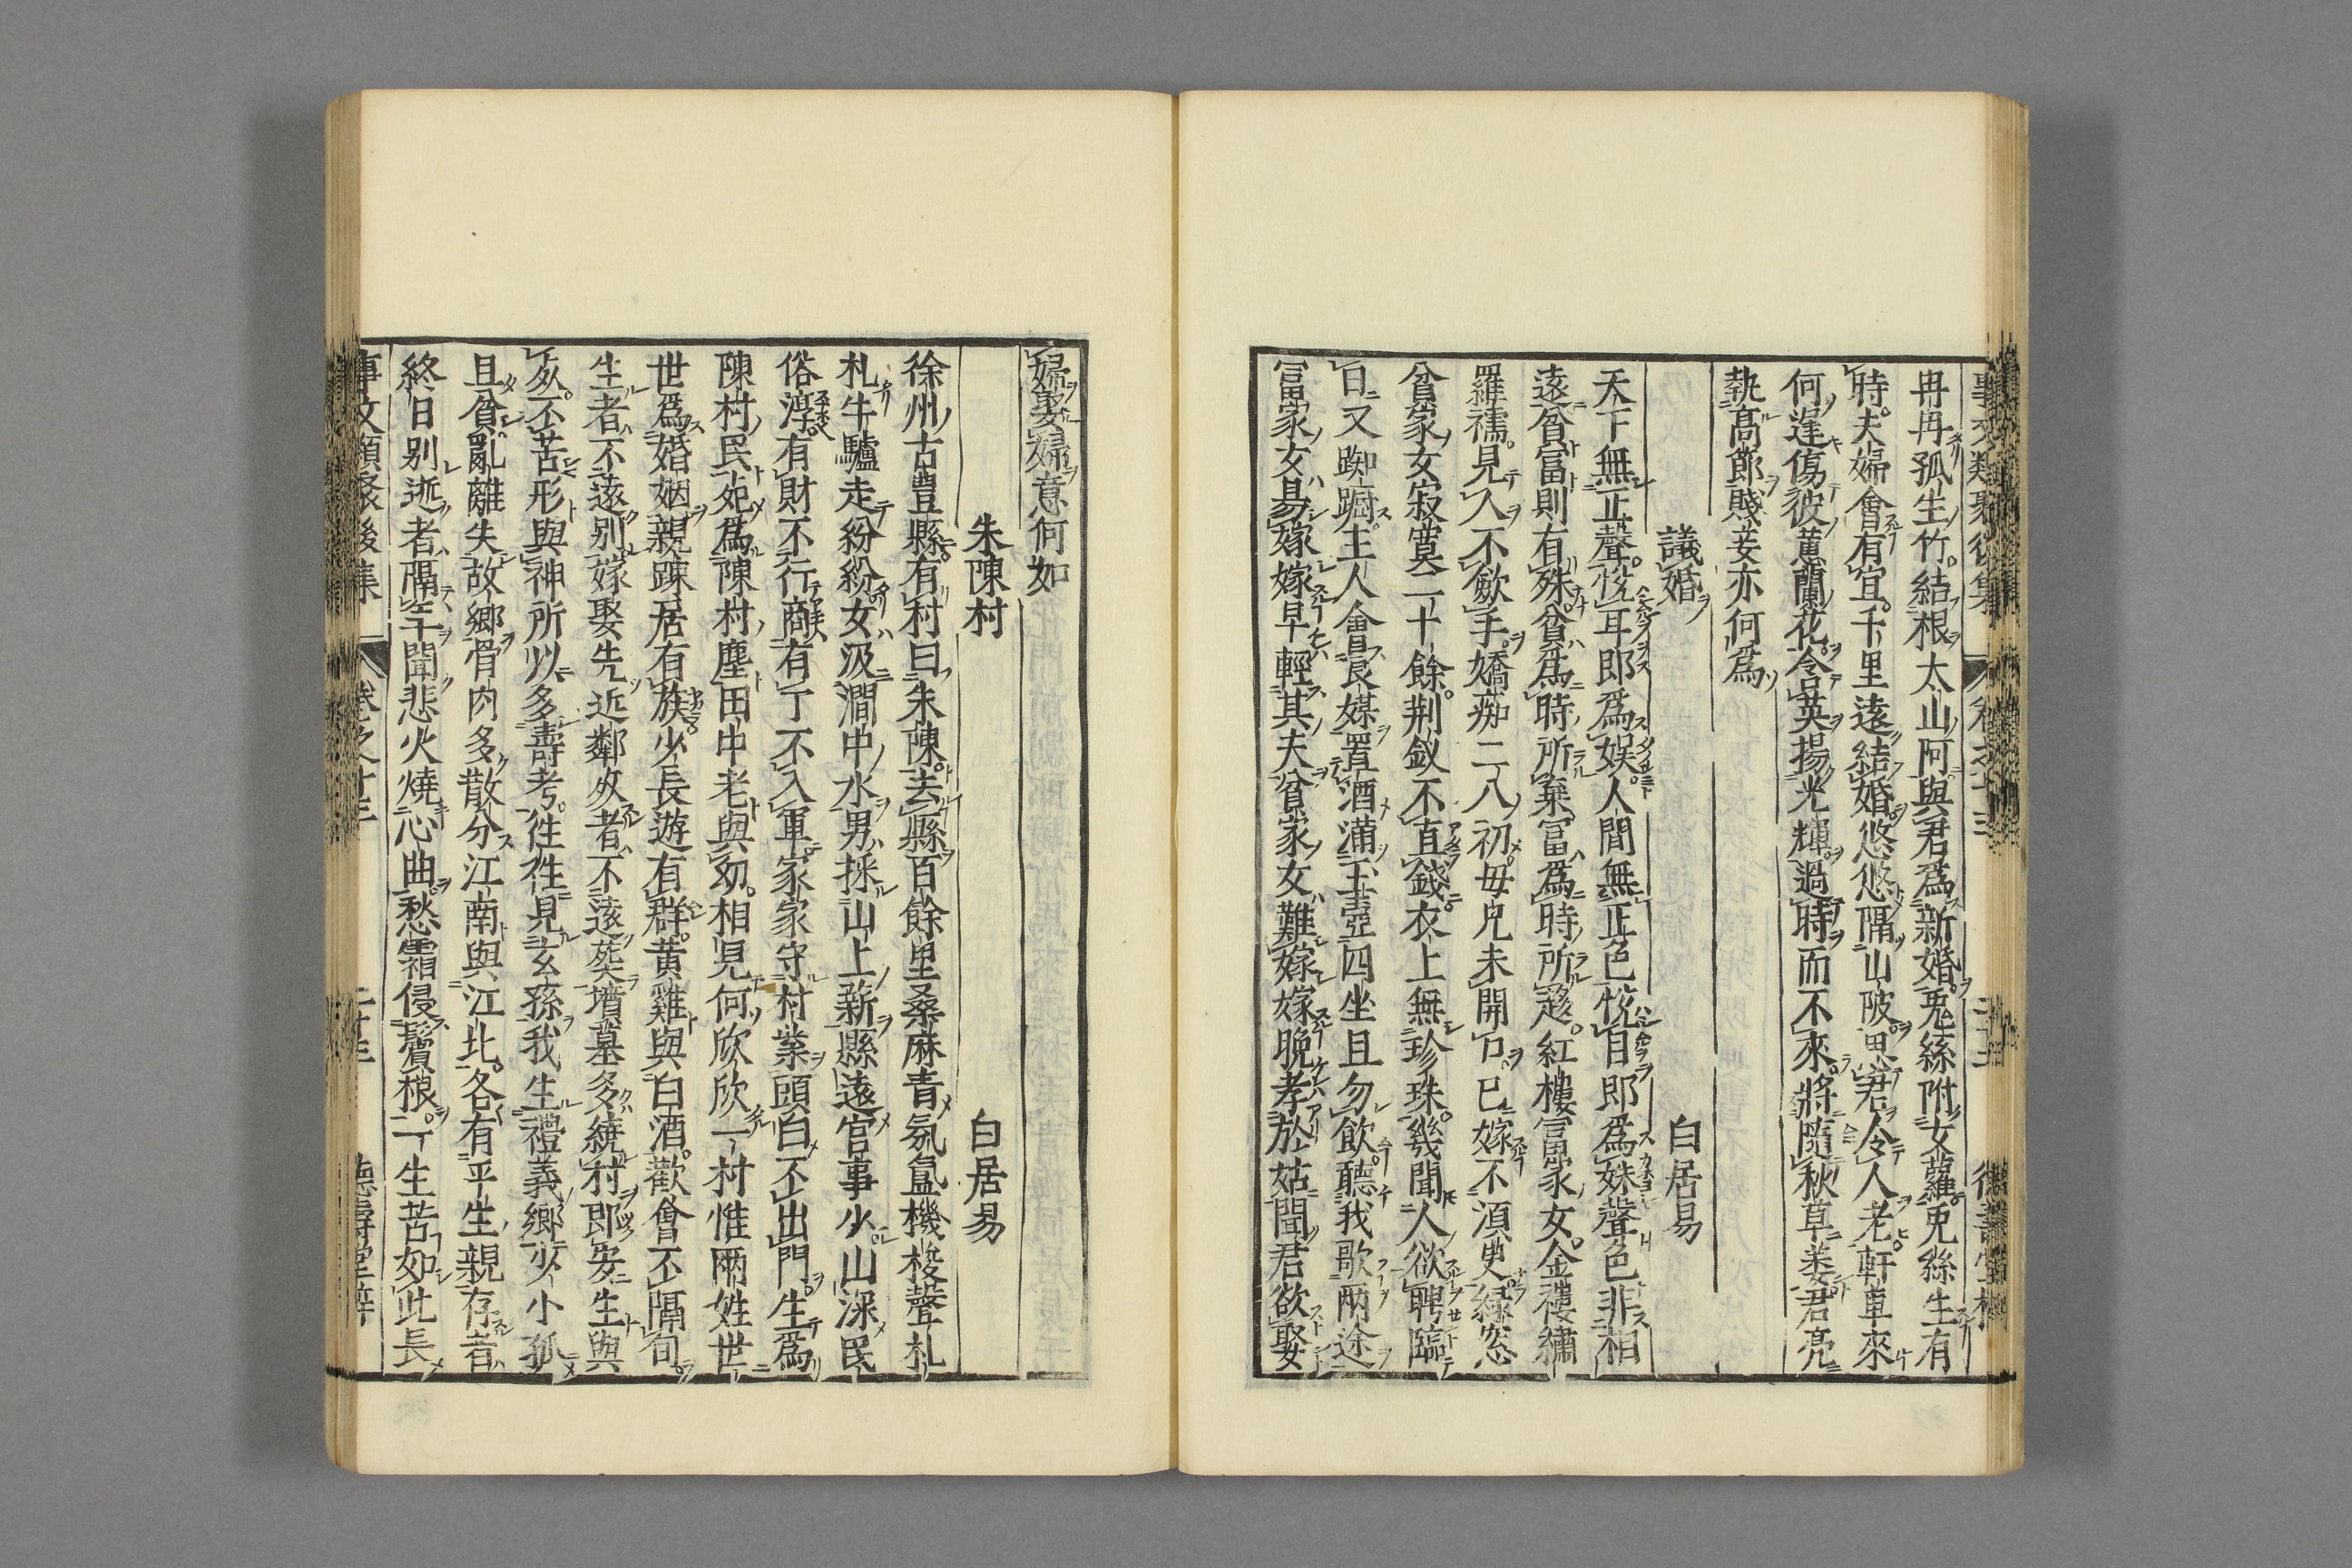 事文類聚後集 卷之十三 德壽堂梓
冉冉孤生竹結根太山阿與君爲新婚兎絲附女蘿兎絲生有
時夫婦會有宜千里遠結婚悠悠隔山陂思君令人老軒車來
何遲傷彼蕙蘭花含英揚光輝過時而不來將隨秋草萎君亮
執高節賤妾亦何爲
議婚 白居易
天下無正聲恱耳即爲娯人間無正色恱目即爲姝聲色非相
遠貧富則有殊貧爲時所棄富爲時所趍紅樓富家女金縷繡
羅襦見人不斂手嬌痴二八初母兄未開口已嫁不湏臾緑窓
貧家女寂寞二十餘荆釵不直錢衣上無珍珠幾聞人欲聘臨
日又踟蹰主人會良媒置酒滿玉壺四坐且勿飲聽我歌兩途
富家女易嫁嫁早輕其夫貧家女難嫁嫁晚孝於姑聞君欲娶
婦娶婦意何如
朱陳村 白居易
徐州古豊縣有村曰朱陳去縣百餘里桑麻青氛氲機梭聲札
札牛驢走紛紛女汲澗中水男採山上薪縣遠官事少山深民
俗淳有財不行商有丁不入軍家家守村業頭白不出門生爲
陳村民死爲陳村塵田中老與幼相見何欣欣一村惟兩姓世
世爲婚姻親踈居有族少長遊有群黄雞與白酒歡會不隔旬
生者不遠別嫁娶先近鄰死者不遠葬墳墓多繞村即安生與
死不苦形與神所以多壽考徃徃見玄孫我生禮義鄉少小孤
且貧亂離失故鄉骨肉多散分江南與江北各有平生親存者
終日別逝者隔年聞悲火燒心曲愁霜侵鬢根一生苦如此長
事文類聚後集 卷之十三 二十三 德壽堂梓